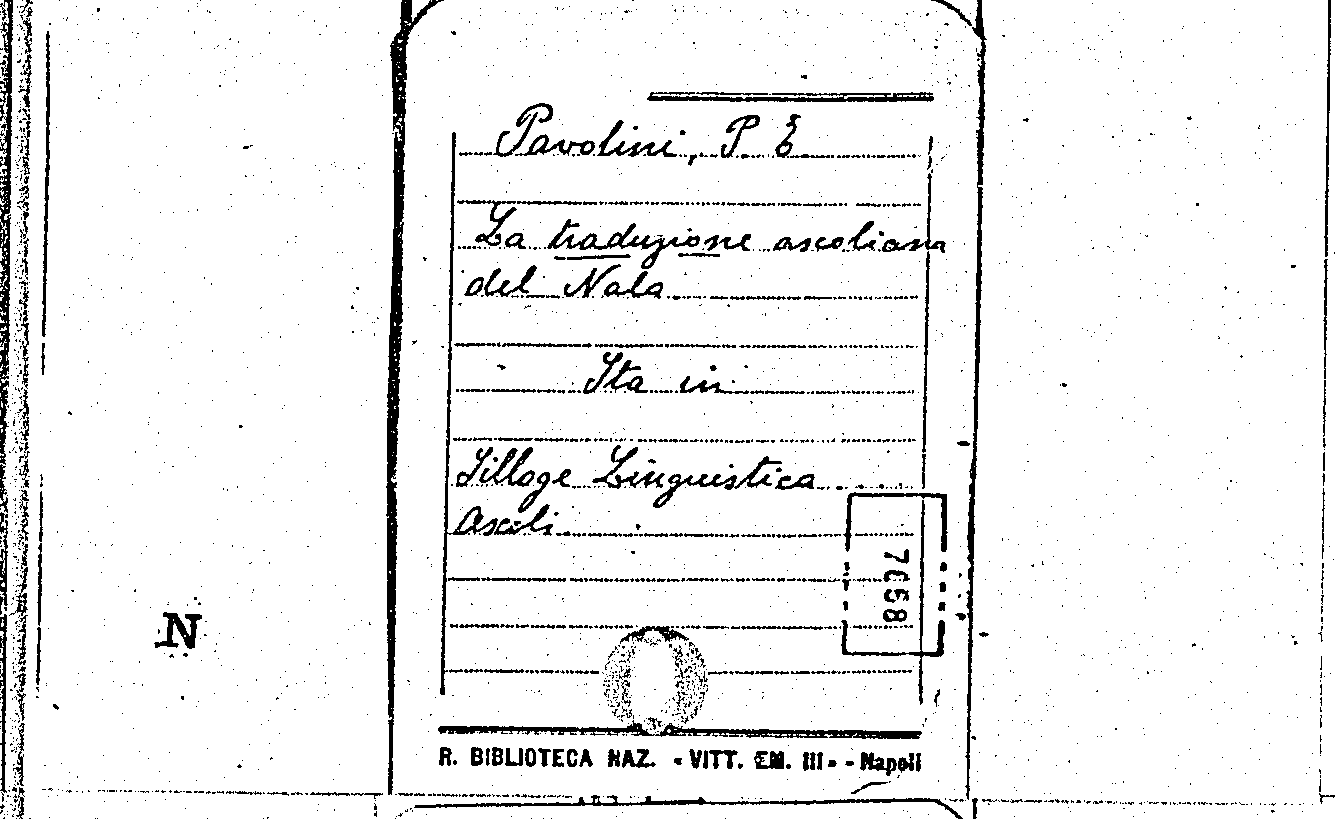 Pavolini, P. E.
La traduzione ascoliana
del Nala
Sta in
Silloge Linguistica ....
Ascoli
7668
N
R. BIBLIOTECA NAZ. « VITT. EM. III » - Napoli